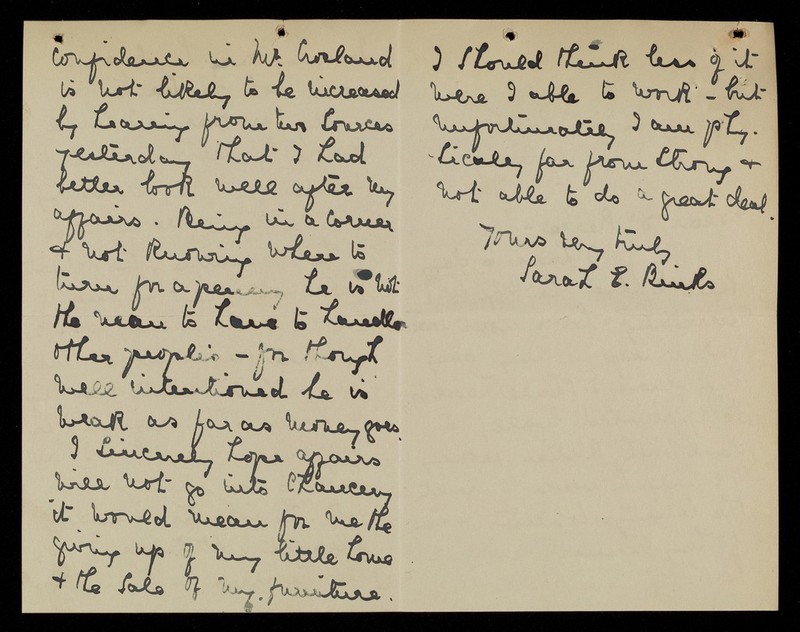 confidence in Mr. Crosland
is not likely to be increased
by hearing from two sources
yesterday that I had
better look well after my
affairs. Being in a corner
& not knowing where to
turn for a penny he is not
the man to have to handle
other people's – for though
well intentioned he is
weak as far as money goes.
I sincerely hope affairs
will not go into Chancery
it would mean for me the
giving up of my little home
& the sale of my furniture.
I should think less of it
were I able to work – but
unfortunately I am phy-
-sically far from strong &
not able to do a great deal.
Yours very truly
Sarah E. Binks